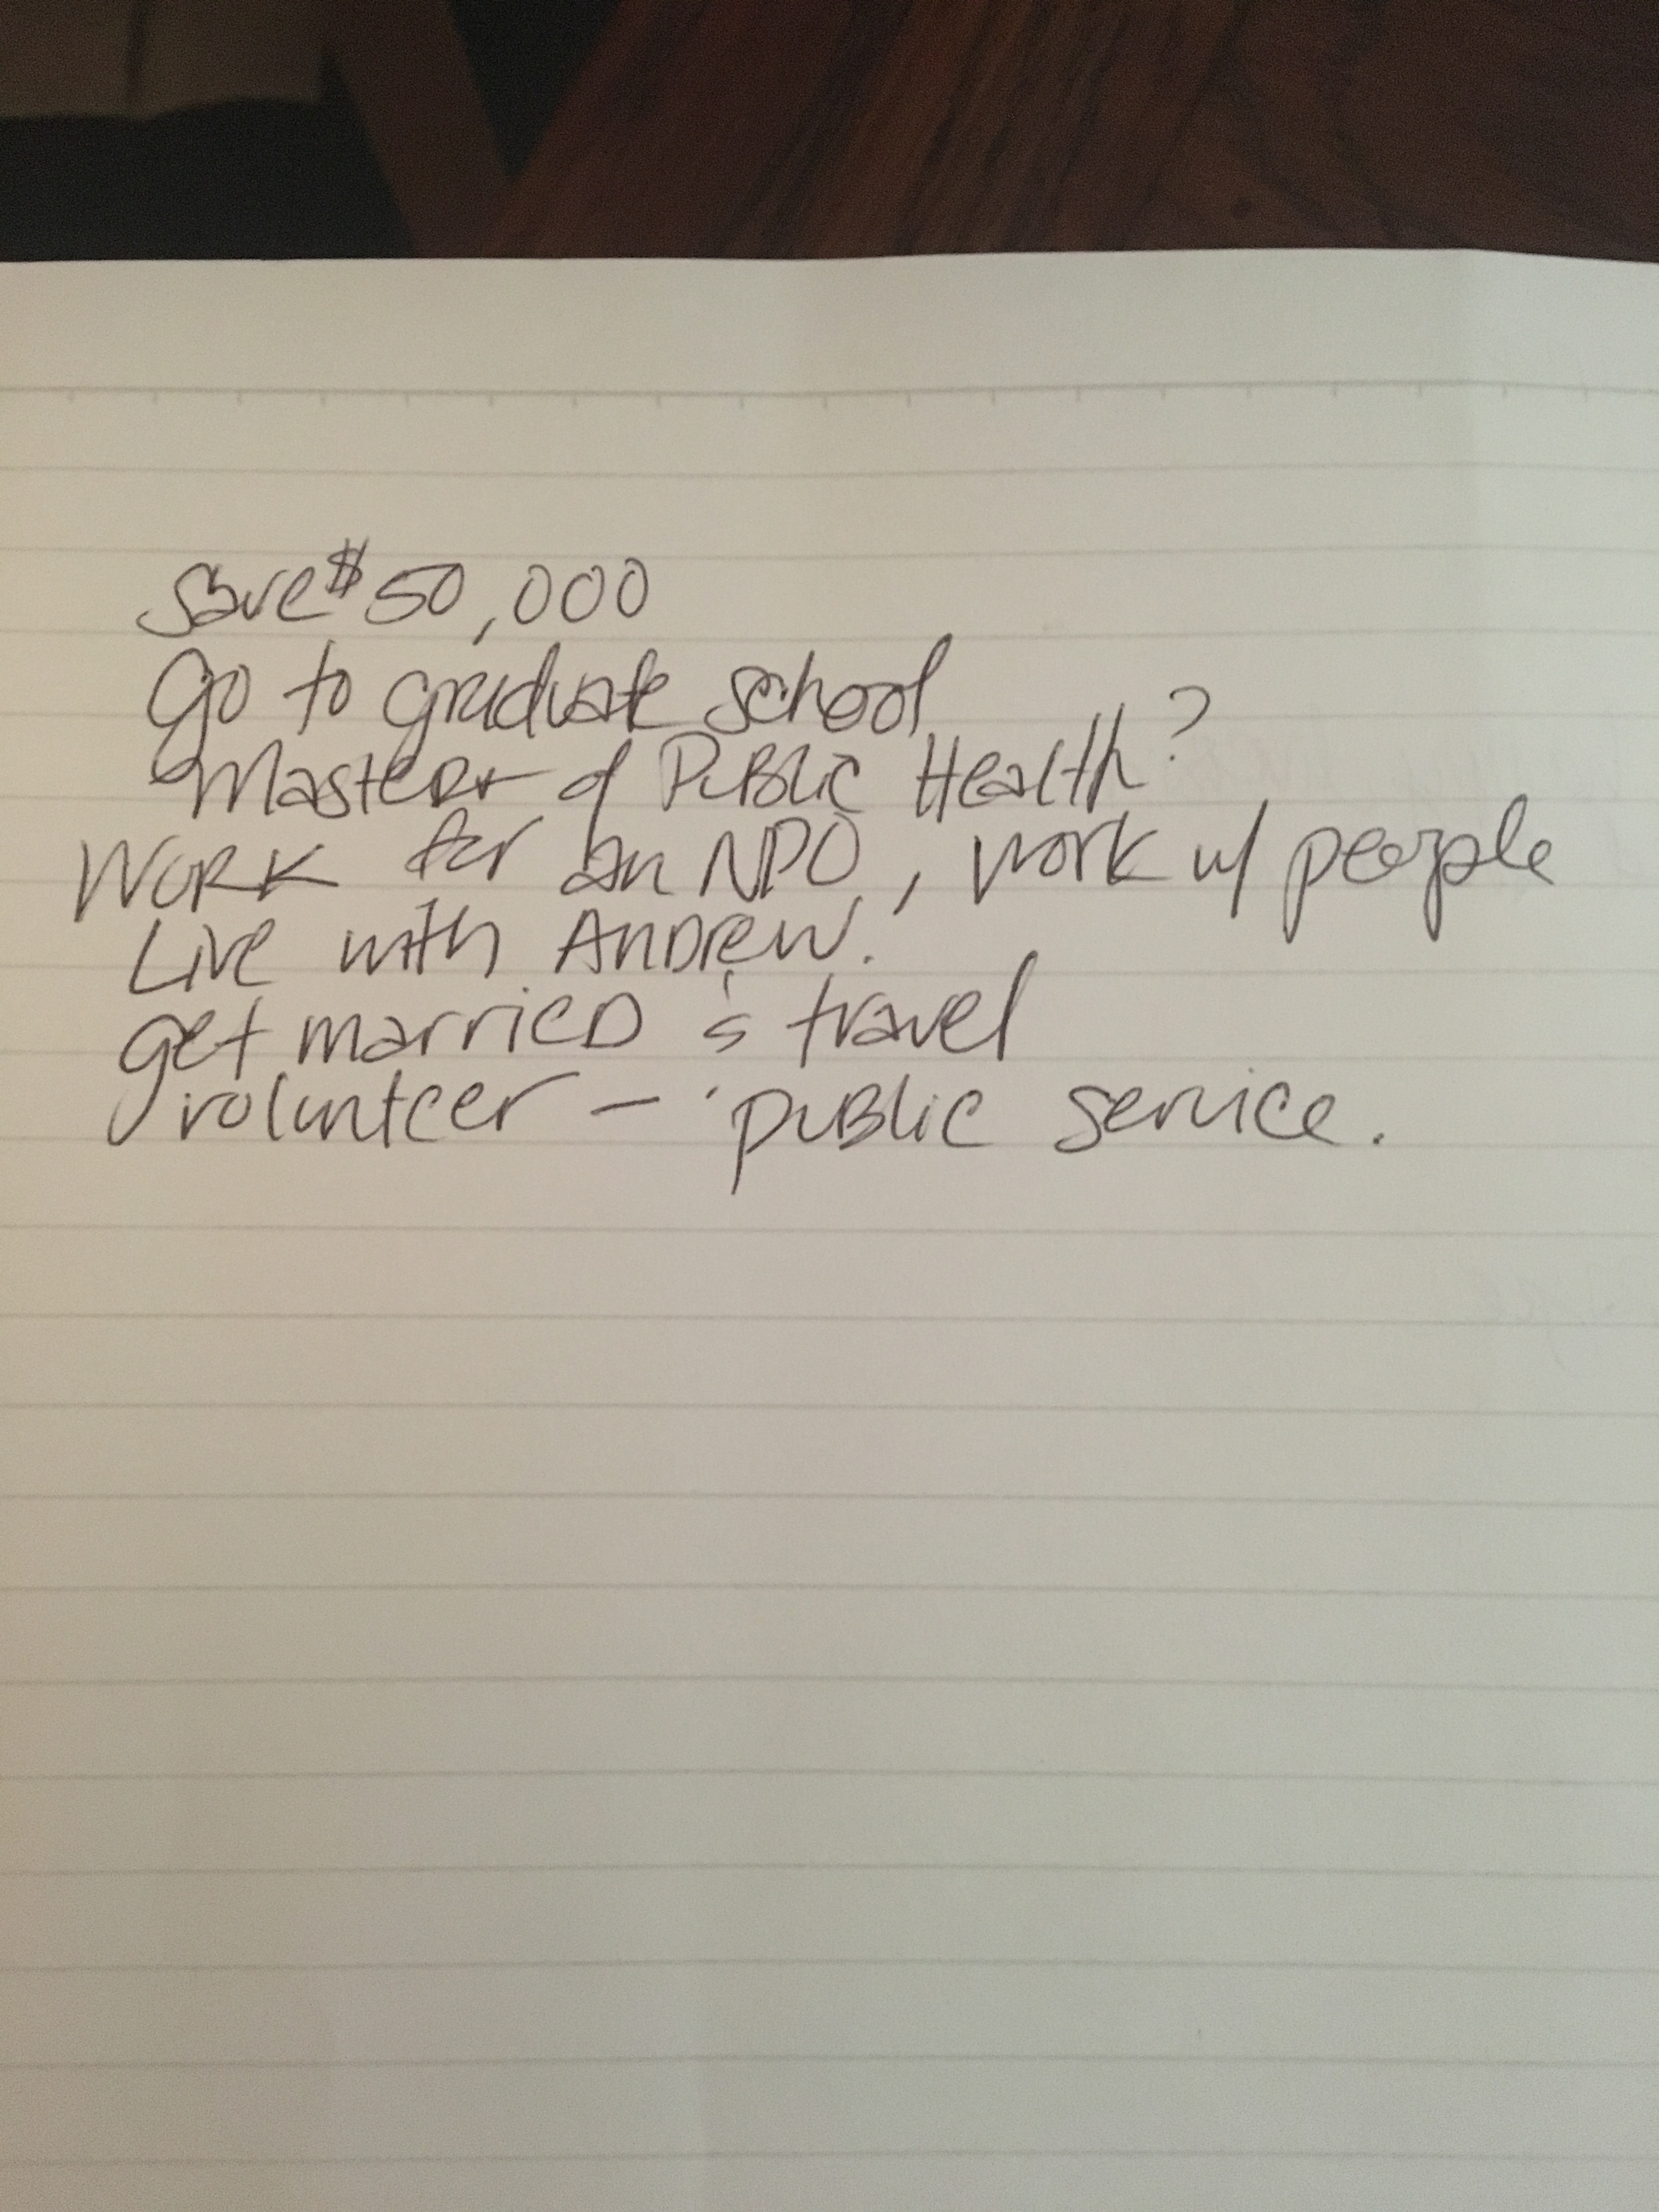 Save $50,000
Go to graduate school
Master of Public Health?
Work for an NPO, work w/ people
Live with Andrew.
get married & travel
volunteer – public service.